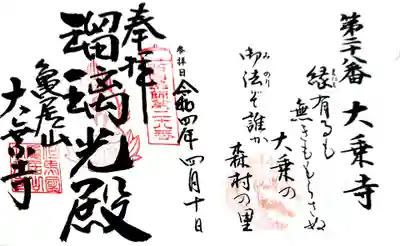 第二十八番 大乗寺
縁有るも
無きももらさぬ
大乗の
御法ぞ誰か
みのり
森村の里
参拝日
令和四年四月十日
奉拝
瑠璃光殿
亀居山
大乗寺